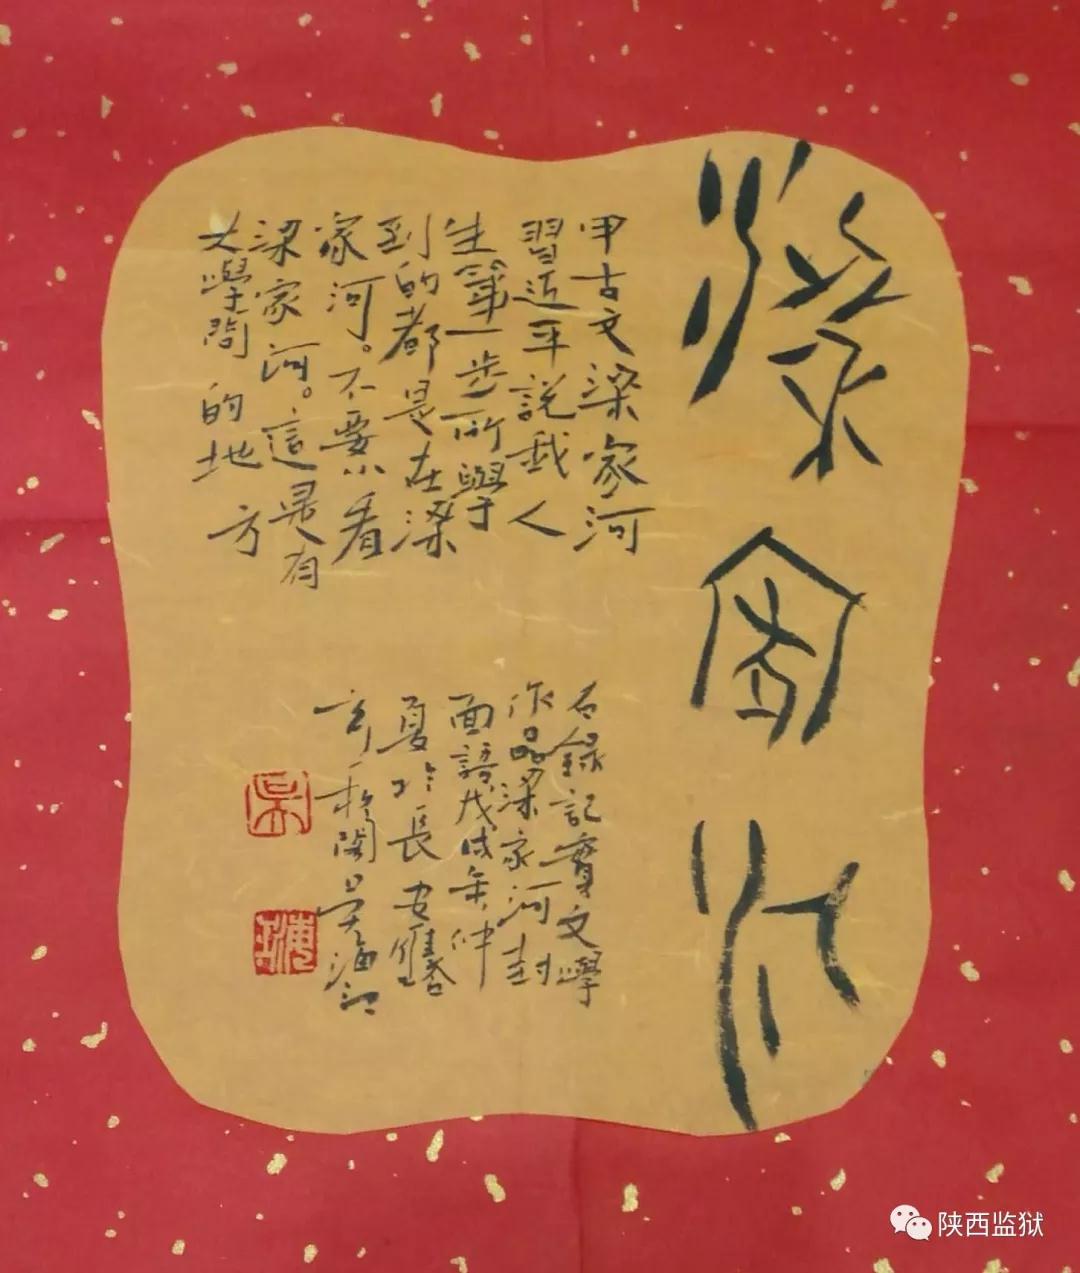 梁家河
甲古文梁家河
習近平說我人
生第一步所學
到的都是在梁
家河。不要小看
梁家河。這是有
大學問的地方
右錄記實文學
作品梁家河封
面語戊戌年仲
夏於長安雁塔
陕西监狱